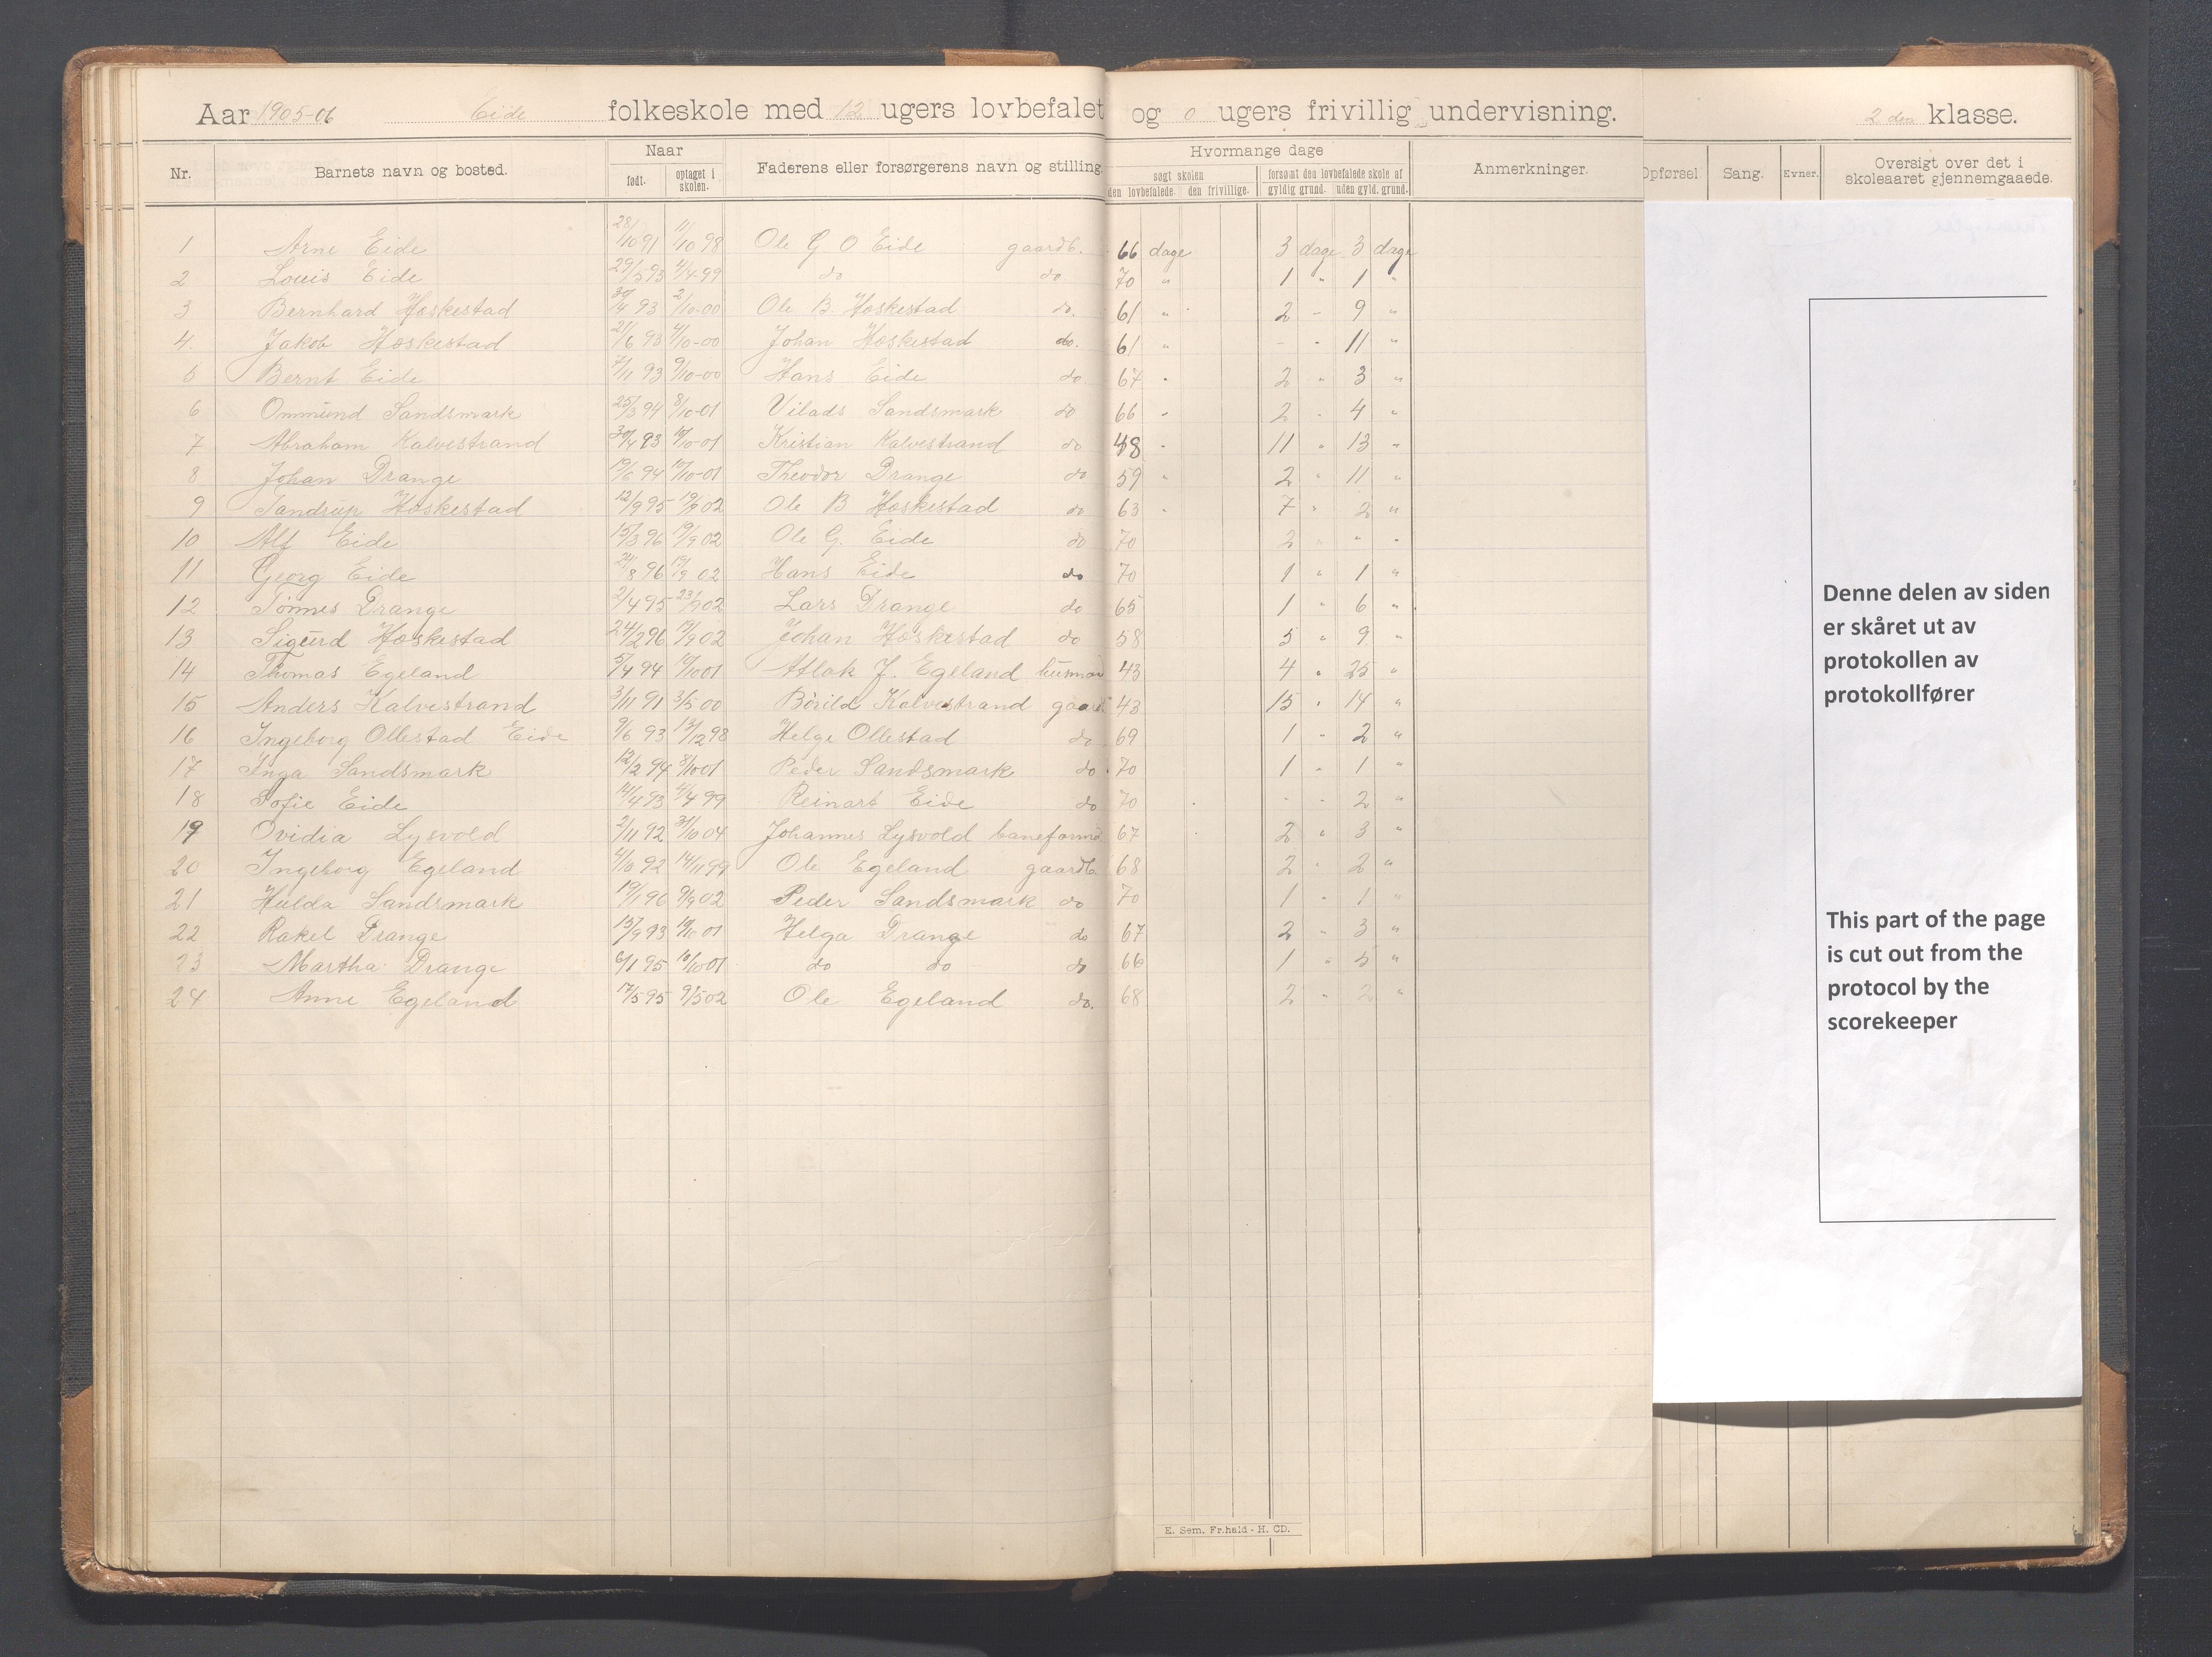 Aar 1905-06 Eide folkeskole med 12 ugers lovbefalet og 0 ugers frivillig undervisning. 2den klasse.
Nr. Barnets navn og bosted. Naar født. optaget i skolen. Faderens eller forsørgerens navn og stilling. Hvormange dage søgt skolen den lovbefalede. den frivillige. forsømt den lovbefalede skole af gyldig grund. uden gyld. grund. Anmerkninger. Opførsel. Sang. Evner. Oversigt over det i skoleaaret gjennemgaaede.
1 Arne Eide 28/10 91 11/10 98 Ole G O Eide gaardb. 66 dage 3 dage 3 dage
2 Louis Eide 29/5 93 4/4-99 do do 70 " 1 " 1 "
3 Bernhard Hæskestad 30/4 93 2/10-00 Ole B. Hæskestad do. 61 " 2 - 9 "
4. Jakob Hæskestad 21/6 93 4/10-00 Johan Hæskestad do. 61 " - " 11 "
5 Bernt Eide 7/11 93 9/10-00 Hans Eide do 67 " 2 " 3 "
6 Ommund Sandsmark 25/3 94 8/10-01 Vilads Sandsmark do 66 " 2 " 4 "
7 Abraham Kalvestrand 30/4 93 10/10-01 Kristian Kalvestrand do 48 " 11 " 13 "
8 Johan Drange 19/6 94 10/10-01 Theodor Drange do 59 " 2 " 11 "
9 Tandrup Hæskestad 12/9 95 19/9 02 Ole B Hæskestad do 63 " 7 " 2 "
10 Alf Eide 15/3 96 19/9 02 Ole G. Eide do 70 2 " " "
11 Georg Eide 8 96 02 Hans Eide do 70 1 " 1 "
12 Tønnes Drange 2/4 95 02 Lars Drange do 65 1 " 6 "
13 Sigurd Hæskestad 24/2 96 19/9 02 Johan Hæskestad do 58 5 " 9 "
14 Thomas Egeland 5/4 94 10/10 01 Atlak J. Egeland husmand 43 4 " 25 "
15 Anders Kalvestrand 3/11 91 3/5 00 Børild Kalvestrand gaardb 43 15 " 14 "
16 Ingeborg Ollestad Eide 9/6 93 13/12 98 Helge Ollestad do 69 1 " 2 "
17 Inga Sandsmark 12/2 94 8/10 01 Peder Sandsmark do 70 1 " 1 "
18 Sofie Eide 14/4 93 4/4 99 Reinart Eide do 70 - - 2 "
19 Ovidia Lysvold 2/11 92 31/10 04 Johannes Lysvold baneformd 67 2 " 3 "
20 Ingeborg Egeland 4/10 92 14/11 99 Ole Egeland gaardb. 68 2 " 2 "
21 Hulda Sandsmark 19/1 96 9/9 02 Peder Sandsmark do 70 1 " 1 "
22 Rakel Drange 15/9 93 10/10 01 Helga Drange do 67 2 " 3 "
23 Martha Drange 6/1 95 10/10 01 do do do 66 1 " 5 "
24 Anne Egeland 17/5 95 9/5 02 Ole Egeland do. 68 2 " 2 "
Denne delen av siden
er skåret ut av
protokollen av
protokollfører
This part of the page
is cut out from the
protocol by the
scorekeeper
E. Sem. Fr.hald - H. CD.